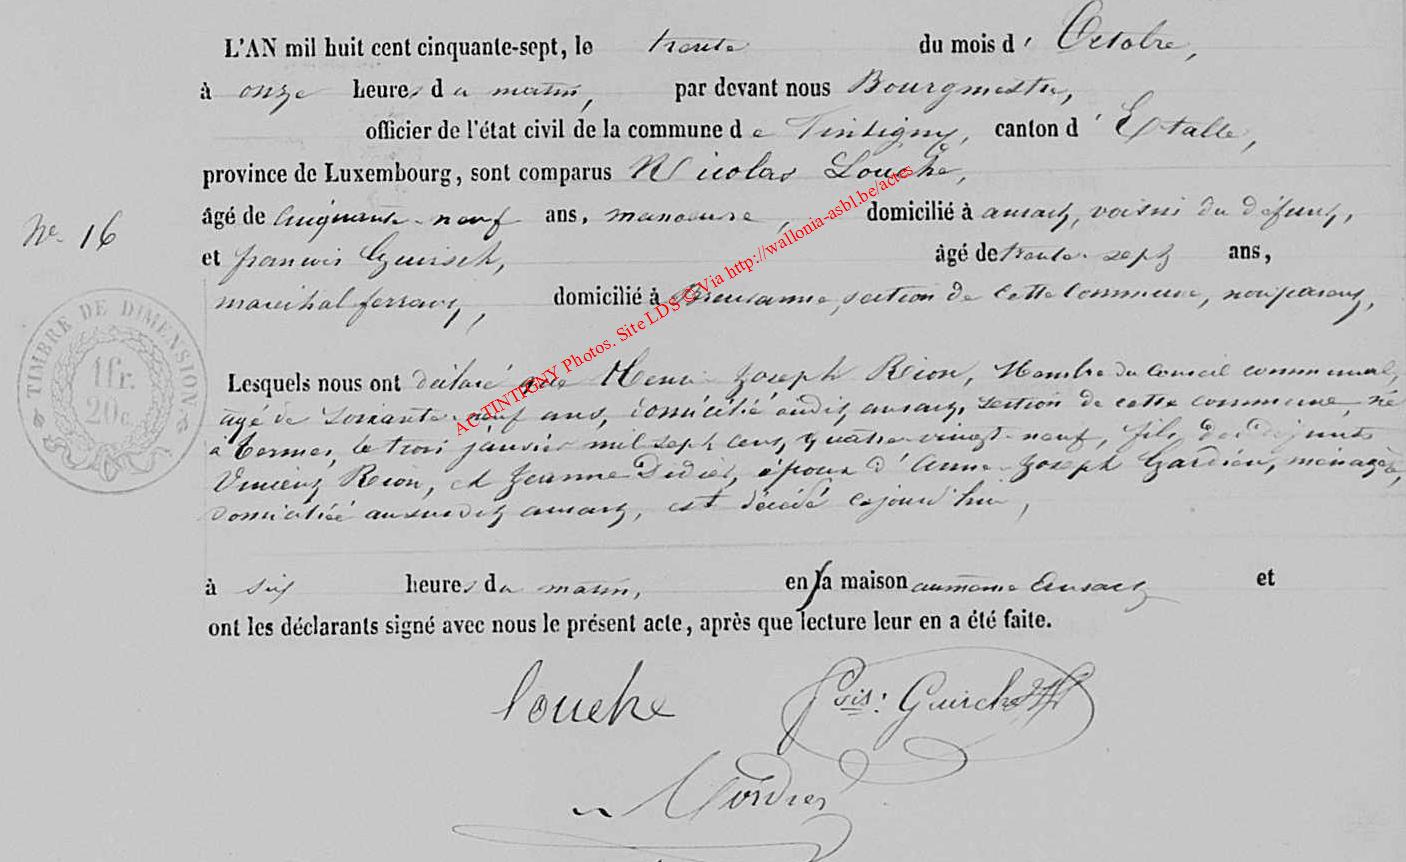 L'AN mil huit cent cinquante-sept, le trente du mois d' Octobre,
à onze heures du matin, par devant nous Bourgmestre,
officier de l'état civil de la commune de Tintigny, canton d' Etalle,
province de Luxembourg, sont comparus Nicolas Louche,
No. 16
âgé de cinquante-neuf ans, manoeuvre, domicilié à ansart, voisin du défunt,
et francois Guirsch, âgé de trente sept ans,
maréchal ferrant, domicilié à Breuvanne, section de cette Commune, non parent,
TIMBRE DE DIMENSION.
1fr.
20c.
Lesquels nous ont déclaré que Henri Joseph Rion, Membre du Conseil communal,
agé de soixante-neuf ans, domicilié audit ansart, section de cette commune, né
à termes, le trois janvier mil sept cent quatre-vingt-neuf, fils des défunts
Vincent Rion, et Jeanne Didier, époux d'Anne-Joseph Gardien, ménagère,
domiciliée ausudit ansart, est décédé cejourd'hui,
à six heures du matin, en sa maison au même Ansart et
ont les déclarants signé avec nous le présent acte, après que lecture leur en a été faite.
louche
fcois: Guirch
AC TINTIGNY Photos. Site LDS © Via http://wallonia-asbl.be/actes